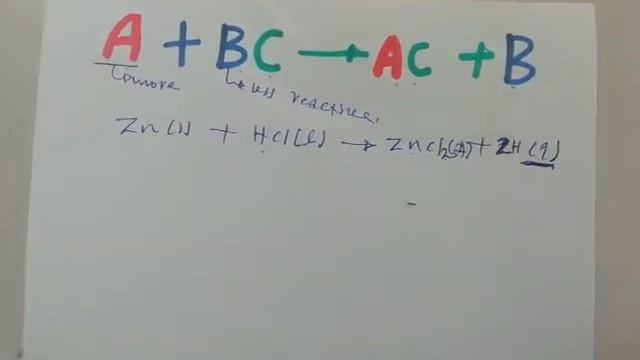 A + BC → AC + B
more less reactive.
Zn(s) + HCl(l) → ZnCl2(s) + 2H(g)